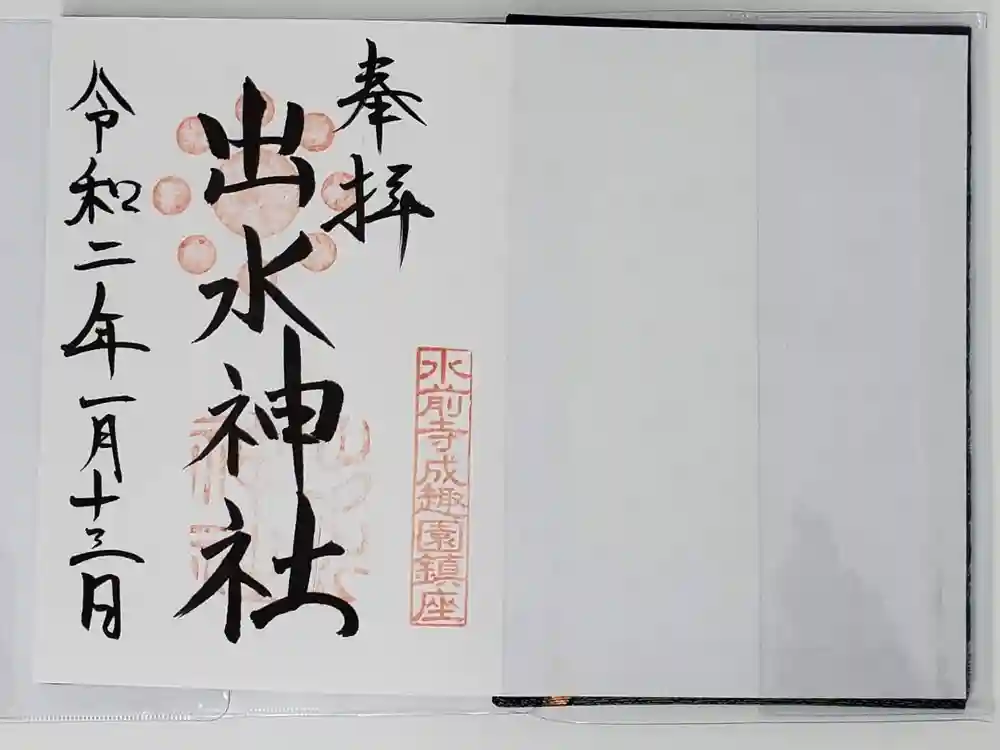 奉拝
水前寺成趣園鎮座
出水神社
令和二年一月十三日